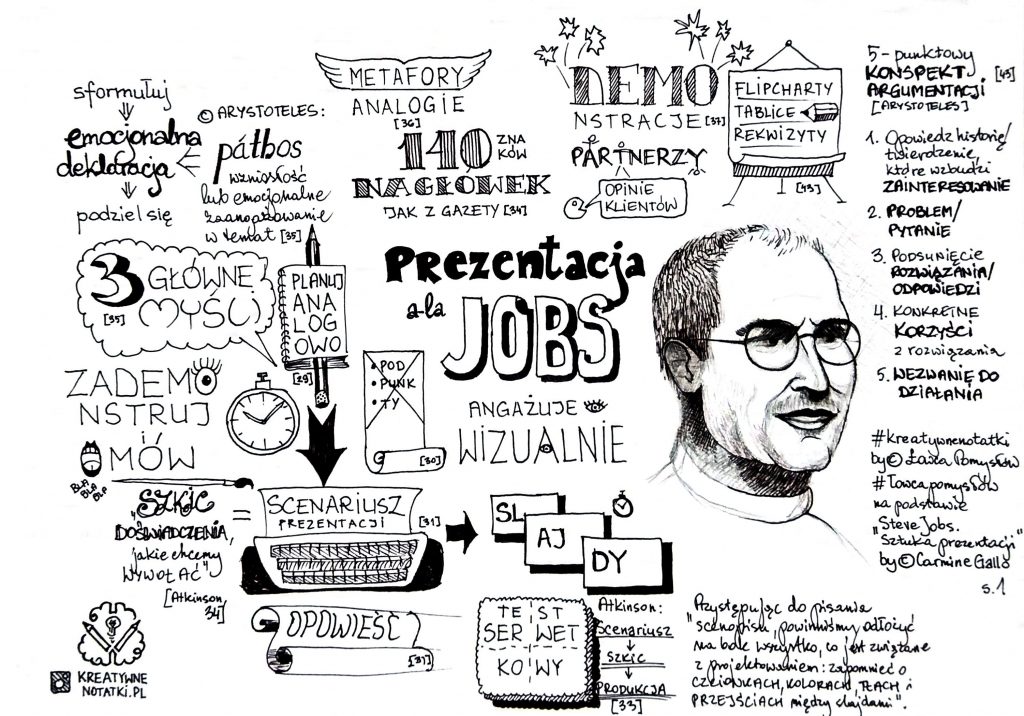 sformułuj
emocjonalna
deklaracja
podziel się
© ARYSTOTELES:
páthos
wzniosłość
lub emocjonalne
zaangażowanie
w temat [35]
METAFORY
ANALOGIE
[36]
140 ZNA
KÓW
NAGŁÓWEK
JAK Z GAZETY [34]
DEMO
NSTRACJE [37]
PARTNERZY
OPINIE
KLIENTÓW
FLIPCHARTY
TABLICE
REKWIZYTY
[43]
5-punktowy
KONSPEKT [45]
ARGUMENTACJI
[ARYSTOTELES]
1. Opowiedz historię/
twierdzenie,
które wzbudzi
ZAINTERESOWANIE
2. PROBLEM/
PYTANIE
3. PODSUNIĘCIE
ROZWIĄZANIA/
ODPOWIEDZI
4. KONKRETNE
KORZYŚCI
z rozwiązania
5. WEZWANIE DO
DZIAŁANIA
3 GŁÓWNE
MYŚLI
[35]
PLANUJ
ANA
LOG
OWO
[29]
Prezentacja
a-la JOBS
ANGAŻUJE
WIZUALNIE
• POD
• PUNK
• TY
[30]
ZADEMO
NSTRUJ
i
MÓW
BLA
BLA
BLA
"SZKIC
DOŚWIADCZENIA,
jakie chcemy
WYWOŁAĆ"
[Atkinson
34]
=
SCENARIUSZ
PREZENTACJI
[31]
SL
AJ
DY
#kreatywnenotatki
by © Łowca Pomysłów
#łowcapomysłów
na podstawie
"Steve Jobs.
Sztuka prezentacji"
by © Carmine Gallo
s.1
OPOWIEŚĆ
[31]
TEST
SERWET
KOWY
Atkinson:
Scenariusz
↓
SZKIC
↓
PRODUKCJA
[33]
Przystępując do pisania
"scenopisu, powinniśmy odłożyć
na bok wszystko, co jest związane
z projektowaniem: zapomnieć o
CZCIONKACH, KOLORACH, TŁACH i
PRZEJŚCIACH między slajdami".
KREATYWNE
NOTATKI.PL